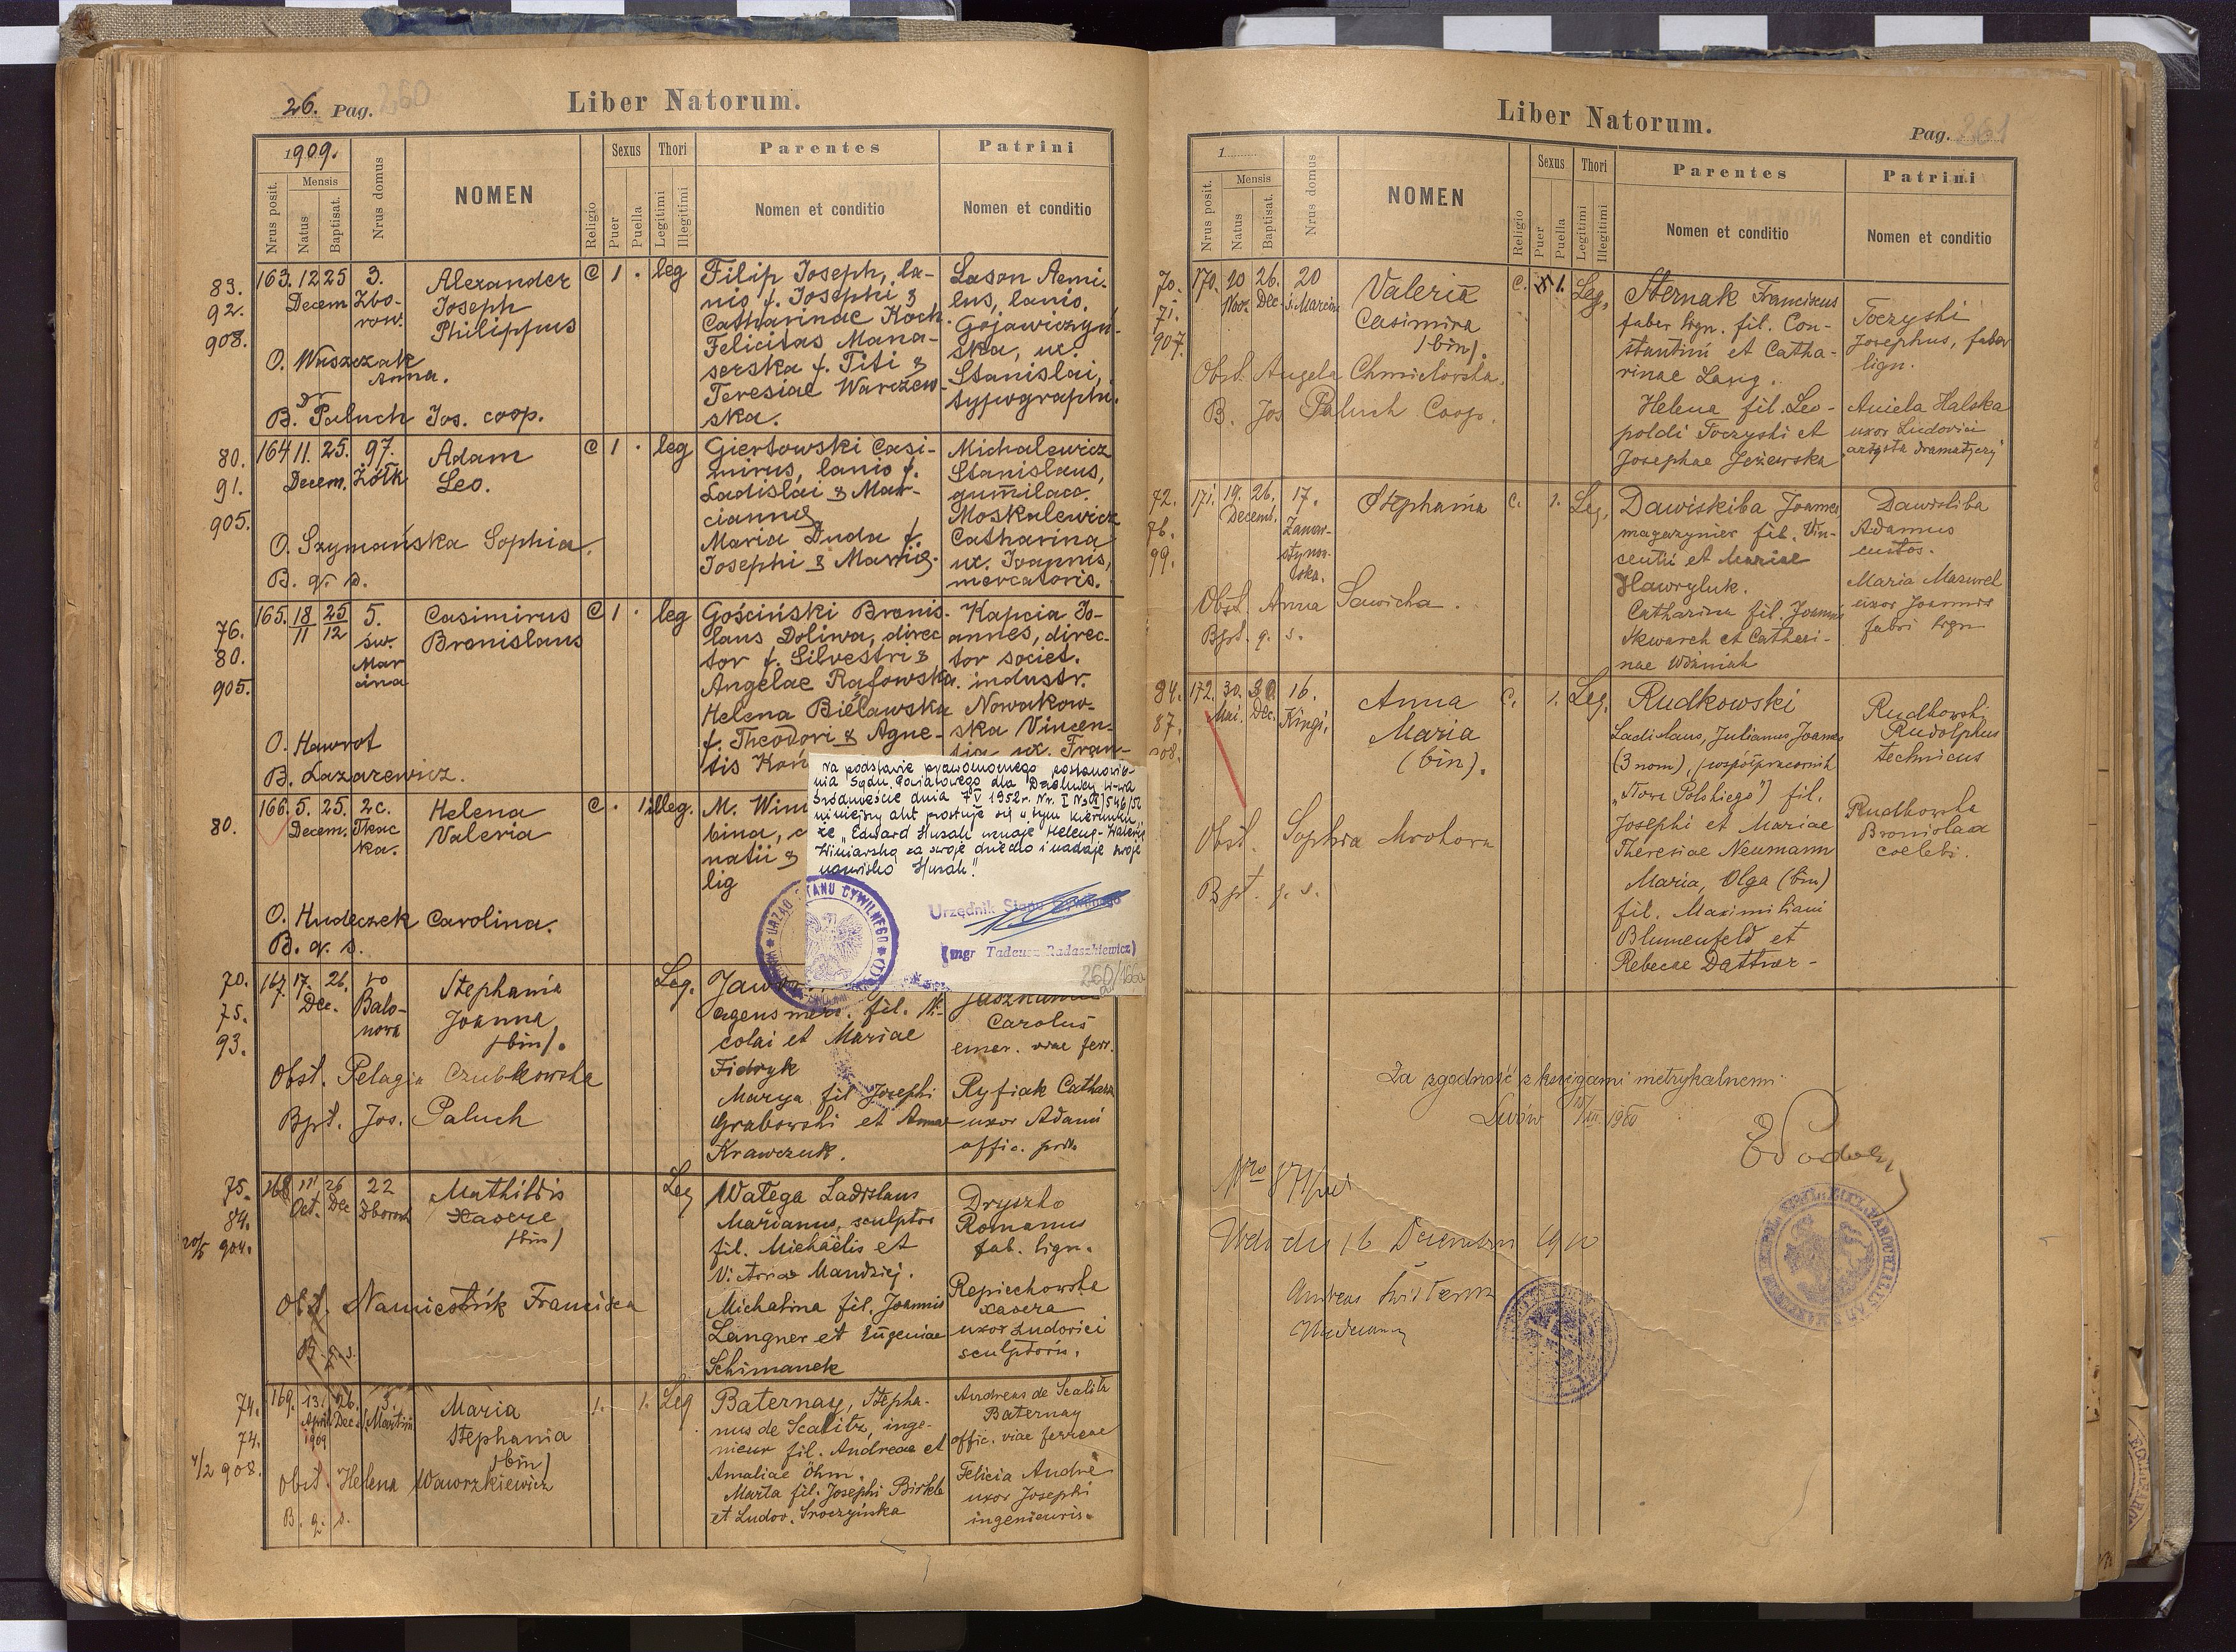 26. Pag. 260
Liber Natorum.
1909.
Nrus posit.
Mensis
Natus
Baptisat.
Nrus domus
NOMEN
Religio
Sexus
Puer
Puella
Thori
Legitimi
Illegitimi
Parentes
Nomen et conditio
Patrini
Nomen et conditio
83.
92.
908.
163. 12 25 3.
Decem Zbo-
row.
Alexander
Joseph
Philippus
C 1 . leg
Filip Joseph, la-
nio f. Josephi &
Catharinae Koch.
Felicitas Mana-
serska f. Titi &
Teresiae Warczew-
ska.
Lason Aemi-
lus, lanio.
Gojawiczyń-
ska, ux.
Stanislai,
typographi.
O. Waszczak
Anna.
B. Dr Paluch Jos. coop.
80.
91.
905.
164 11. 25. 97.
Decem. Żółk
Adam
Leo.
C 1 . leg
Giertowski Casi-
mirus, lanio f.
Ladislai & Mar-
cianna
Maria Duda f.
Josephi & Mariae.
Michalewicz
Stanislaus,
Moskalewicz
Catharina
ux. Joannis,
mercatoris.
O. Szymańska Sophia.
B. q. s.
76.
80.
905.
165. 18/11 25/12 5.
św.
Mar
cina
Casimirus
Bronislaus
C 1 . leg
Gościński Bronis-
laus Doliwa, direc
tor f. Silvestri &
Angelae Rafowska.
Helena Bielawska
f. Theodori & Agne-
tis
Kapcia Jo-
annes, direc-
tor societ.
industr.
Nowakow-
ska Vincen-
tia ux. Fran-
O. Hawrot
B. Lazarewicz.
80.
166. 5. 25. 2c.
Decem. Tkac
ka.
Helena
Valeria
C . 1 illeg.
M. Wini
bina, c
natii &
lig
O. Hudeczek Carolina.
B. q. s.
Na podstawie prawomocnego postanowie-
nia Sądu Powiatowego dla Dzielnicy W-wa
Śródmieście dnia 7 V 1952 r. Nr. I Ns II/546/52
niniejszy akt prostuje się w tym kierunku,
że "Edward Husak uznaje Helenę-Walerię
Winiarską za swoje dziecko i nadaje swoje
nazwisko Husak".
URZĄD STANU CYWILNEGO
Urzędnik Stanu Cywilnego
(mgr Tadeusz Radaszkiewicz)
260/166a
70.
75.
93.
167. 17. 26. 10
Dec. Balo-
nowa
Stephania
Joanna
(bin).
Leg.
agens merc. fil. Ni-
colai et Mariae
Fidryk
Marya fil Josephi
Grabowski et Annae
Krawczuk.
Carolus
emer. viae ferr.
Ryfiak Cathar.
uxor Adami
offic. priv.
Obst. Pelagia Czubkowska
Bpt. Jos. Paluch
75.
84.
20/5 904.
168 26 22
Oct. Dec Dwornick
Mathildis
Xavere
(bin)
Leg
Watega Ladislaus
Marianus, sculptor
fil. Michaëlis et
Victoriae Mandziej.
Michalina fil. Joannis
Langner et Eugeniae
Schimanek
Dryszko
Romanus
fab. lign.
Repiechowska
Xavera
uxor Ludovici
sculptoris.
Obst. Namiestnik Francisca
B. q. s.
74.
74.
4/2 908.
169. 13. 26. 3.
April Dec. S. Martini
1909
Maria
Stephania
(bin)
1. 1. Leg
Baternay, Stepha-
nus de Scalitz, inge-
nieur fil. Andreae et
Amaliae Öhm.
Marta fil. Josephi Birkle
et Ludov. Sroczyńska
Andreas de Scalitz
Baternay
offic. viae ferreae
Felicia André
uxor Josephi
ingenieuris.
Obst. Helena Wawrzkiewicz
B. q. s.
Liber Natorum.
Pag. 261
1
Nrus posit.
Mensis
Natus
Baptisat.
Nrus domus
NOMEN
Religio
Sexus
Puer
Puella
Thori
Legitimi
Illegitimi
Parentes
Nomen et conditio
Patrini
Nomen et conditio
70.
71.
907.
170. 20 26. 20
Nov. Dec. S. Marcin
Valeria
Casimira
(bin).
C. 1. Leg.
Sternak Franciscus
faber lign. fil. Con-
stantini et Catha-
rinae Lang.
Helena fil. Leo-
poldi Toczyski et
Josephae Jeżewska
Toczyski
Josephus, faber
lign.
Aniela Halska
uxor Ludovici
artysta dramatyczny
Obst. Angela Chmielowska.
B. Jos Paluch Coop.
72.
76.
99.
171. 19. 26. 17.
Decemb. Zamar-
stynow-
ska.
Stephania
C. 1. Leg.
Dawiskiba Joannes
magazynier fil. Vin-
centii et Mariae
Hawryluk.
Catharina fil. Joannis
Skwarek et Cathari-
nae Woźniak
Dawiskiba
Adamus
custos.
Maria Mazurek
uxor Joannis
fabri lign
Obst. Anna Sawicka.
Bpt. q. s.
84.
87.
908.
172. 30. 30. 16.
Mai. Dec. Kingi.
Anna
Maria
(bin).
C. 1. Leg.
Rudkowski
Ladislaus, Julianus Joannes
(3 nom), (współpracownik
"Słowa Polskiego") fil.
Josephi et Mariae
Theresiae Neumann
Maria, Olga (bin)
fil. Maximiliani
Blumenfeld et
Rebecae Dattner -
Rudkowski
Rudolphus
technicus
Rudkowska
Bronislaa
coelebs.
Obst. Sophia Mrohora
Bpt. q. s.
Za zgodność z księgami metrykalnemi
Lwów 1910
Andreas